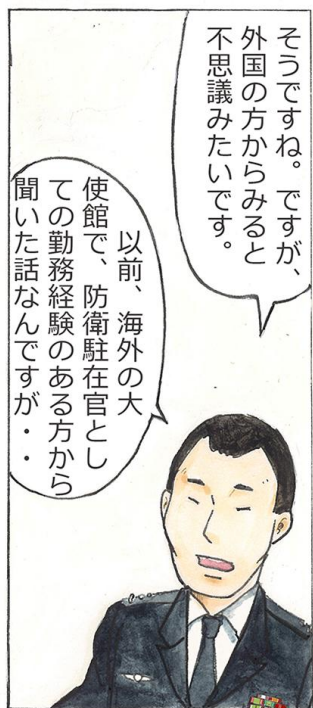 そうですね。ですが、
外国の方からみると
不思議みたいです。
以前、海外の大
使館で、防衛駐在官とし
ての勤務経験のある方から
聞いた話なんですが・・